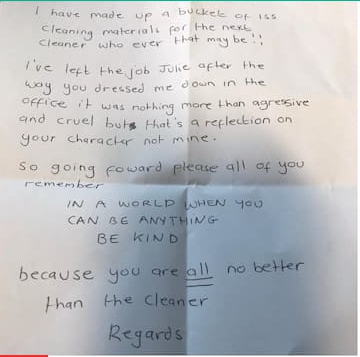 I have made up a bucket of iss
cleaning materials for the next
cleaner who ever that may be!!
I've left the job Julie after the
way you dressed me down in the
office it was nothing more than agressive
and cruel buts that's a reflection on
your character not mine.
So going foward please all of you
remember
IN A WORLD WHEN YOU
CAN BE ANYTHING
BE KIND
because you are all no better
than the cleaner
Regards